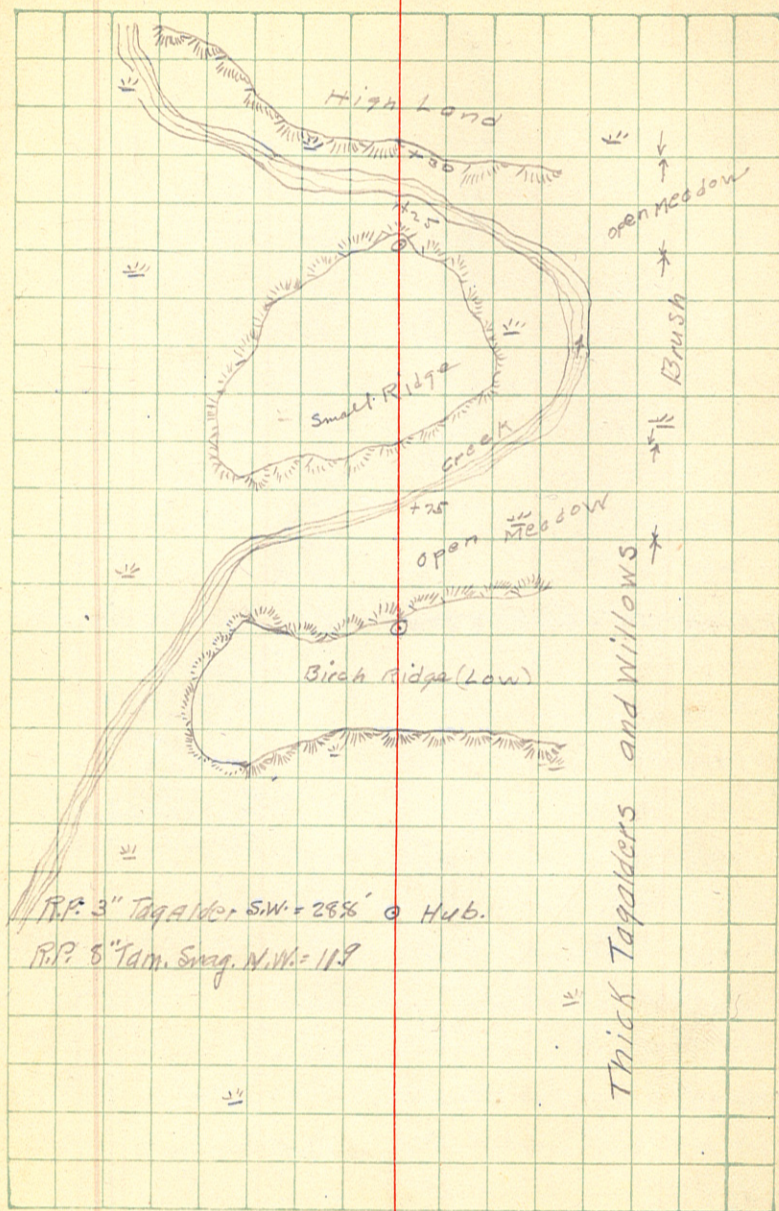 High Land
+00
open Meadow
+25
Brush
Small Ridge
creek
+25
open Meadow
Birch Ridge (Low)
Thick Tagalders and Willows
R.P. 3" Tagalder S.W. = Hub.
R.P. 8" Tam. Snag. N.W. = 11.9